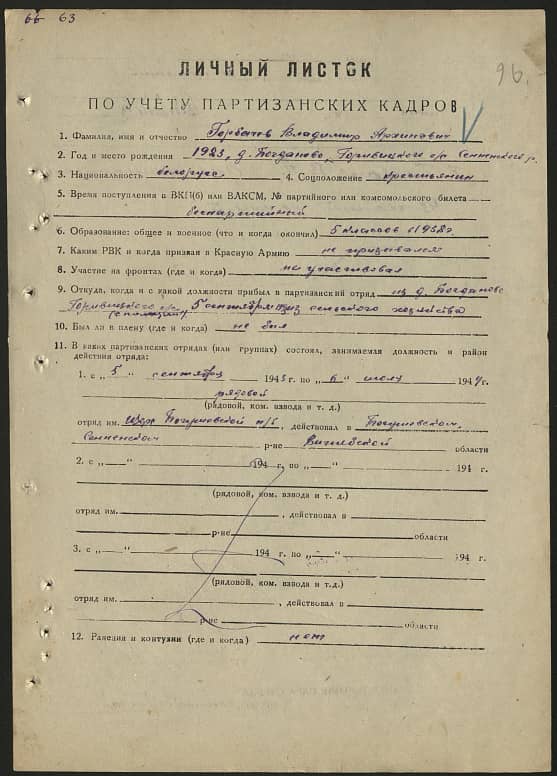 66 63
96.
ЛИЧНЫЙ ЛИСТОК
ПО УЧЕТУ ПАРТИЗАНСКИХ КАДРОВ
1. Фамилия, имя и отчество Горбачов Владимир Архипович
2. Год и место рождения 1923, д. Богданово, Горивицкого с/с Сенненского р.
3. Национальность белорус. 4. Соцположение крестьянин
5. Время поступления в ВКП(б) или ВЛКСМ, № партийного или комсомольского билета
беспартийный
6. Образование: общее и военное (что и когда окончил) 5 классов 1938г.
7. Каким РВК и когда призван в Красную Армию не призывался
8. Участие на фронтах (где и когда) не участвовал
9. Откуда, когда и с какой должности прибыл в партизанский отряд из д. Богданово
Горивицкого с/с, 5 сентября из сельского хозяйства
10. Был ли в плену (где и когда) не был
11. В каких партизанских отрядах (или группах) состоял, занимаемая должность и район
действия отряда:
1. с „5 " сентября 1943 г. по „6 " июля 1944 г.
рядовой
(рядовой, ком. взвода и т. д.)
отряд им. , действовал в
Сенненском р-не Витебской области
2. с „ " 194 г. по „ " 194 г.
(рядовой, ком. взвода и т. д.)
отряд им. , действовал в
р-не области
3. с „ " 194 г. по „ " 194 г.
(рядовой, ком. взвода и т.д.)
отряд им. , действовал в
р-не области
12. Ранения и контузии (где и когда) нет